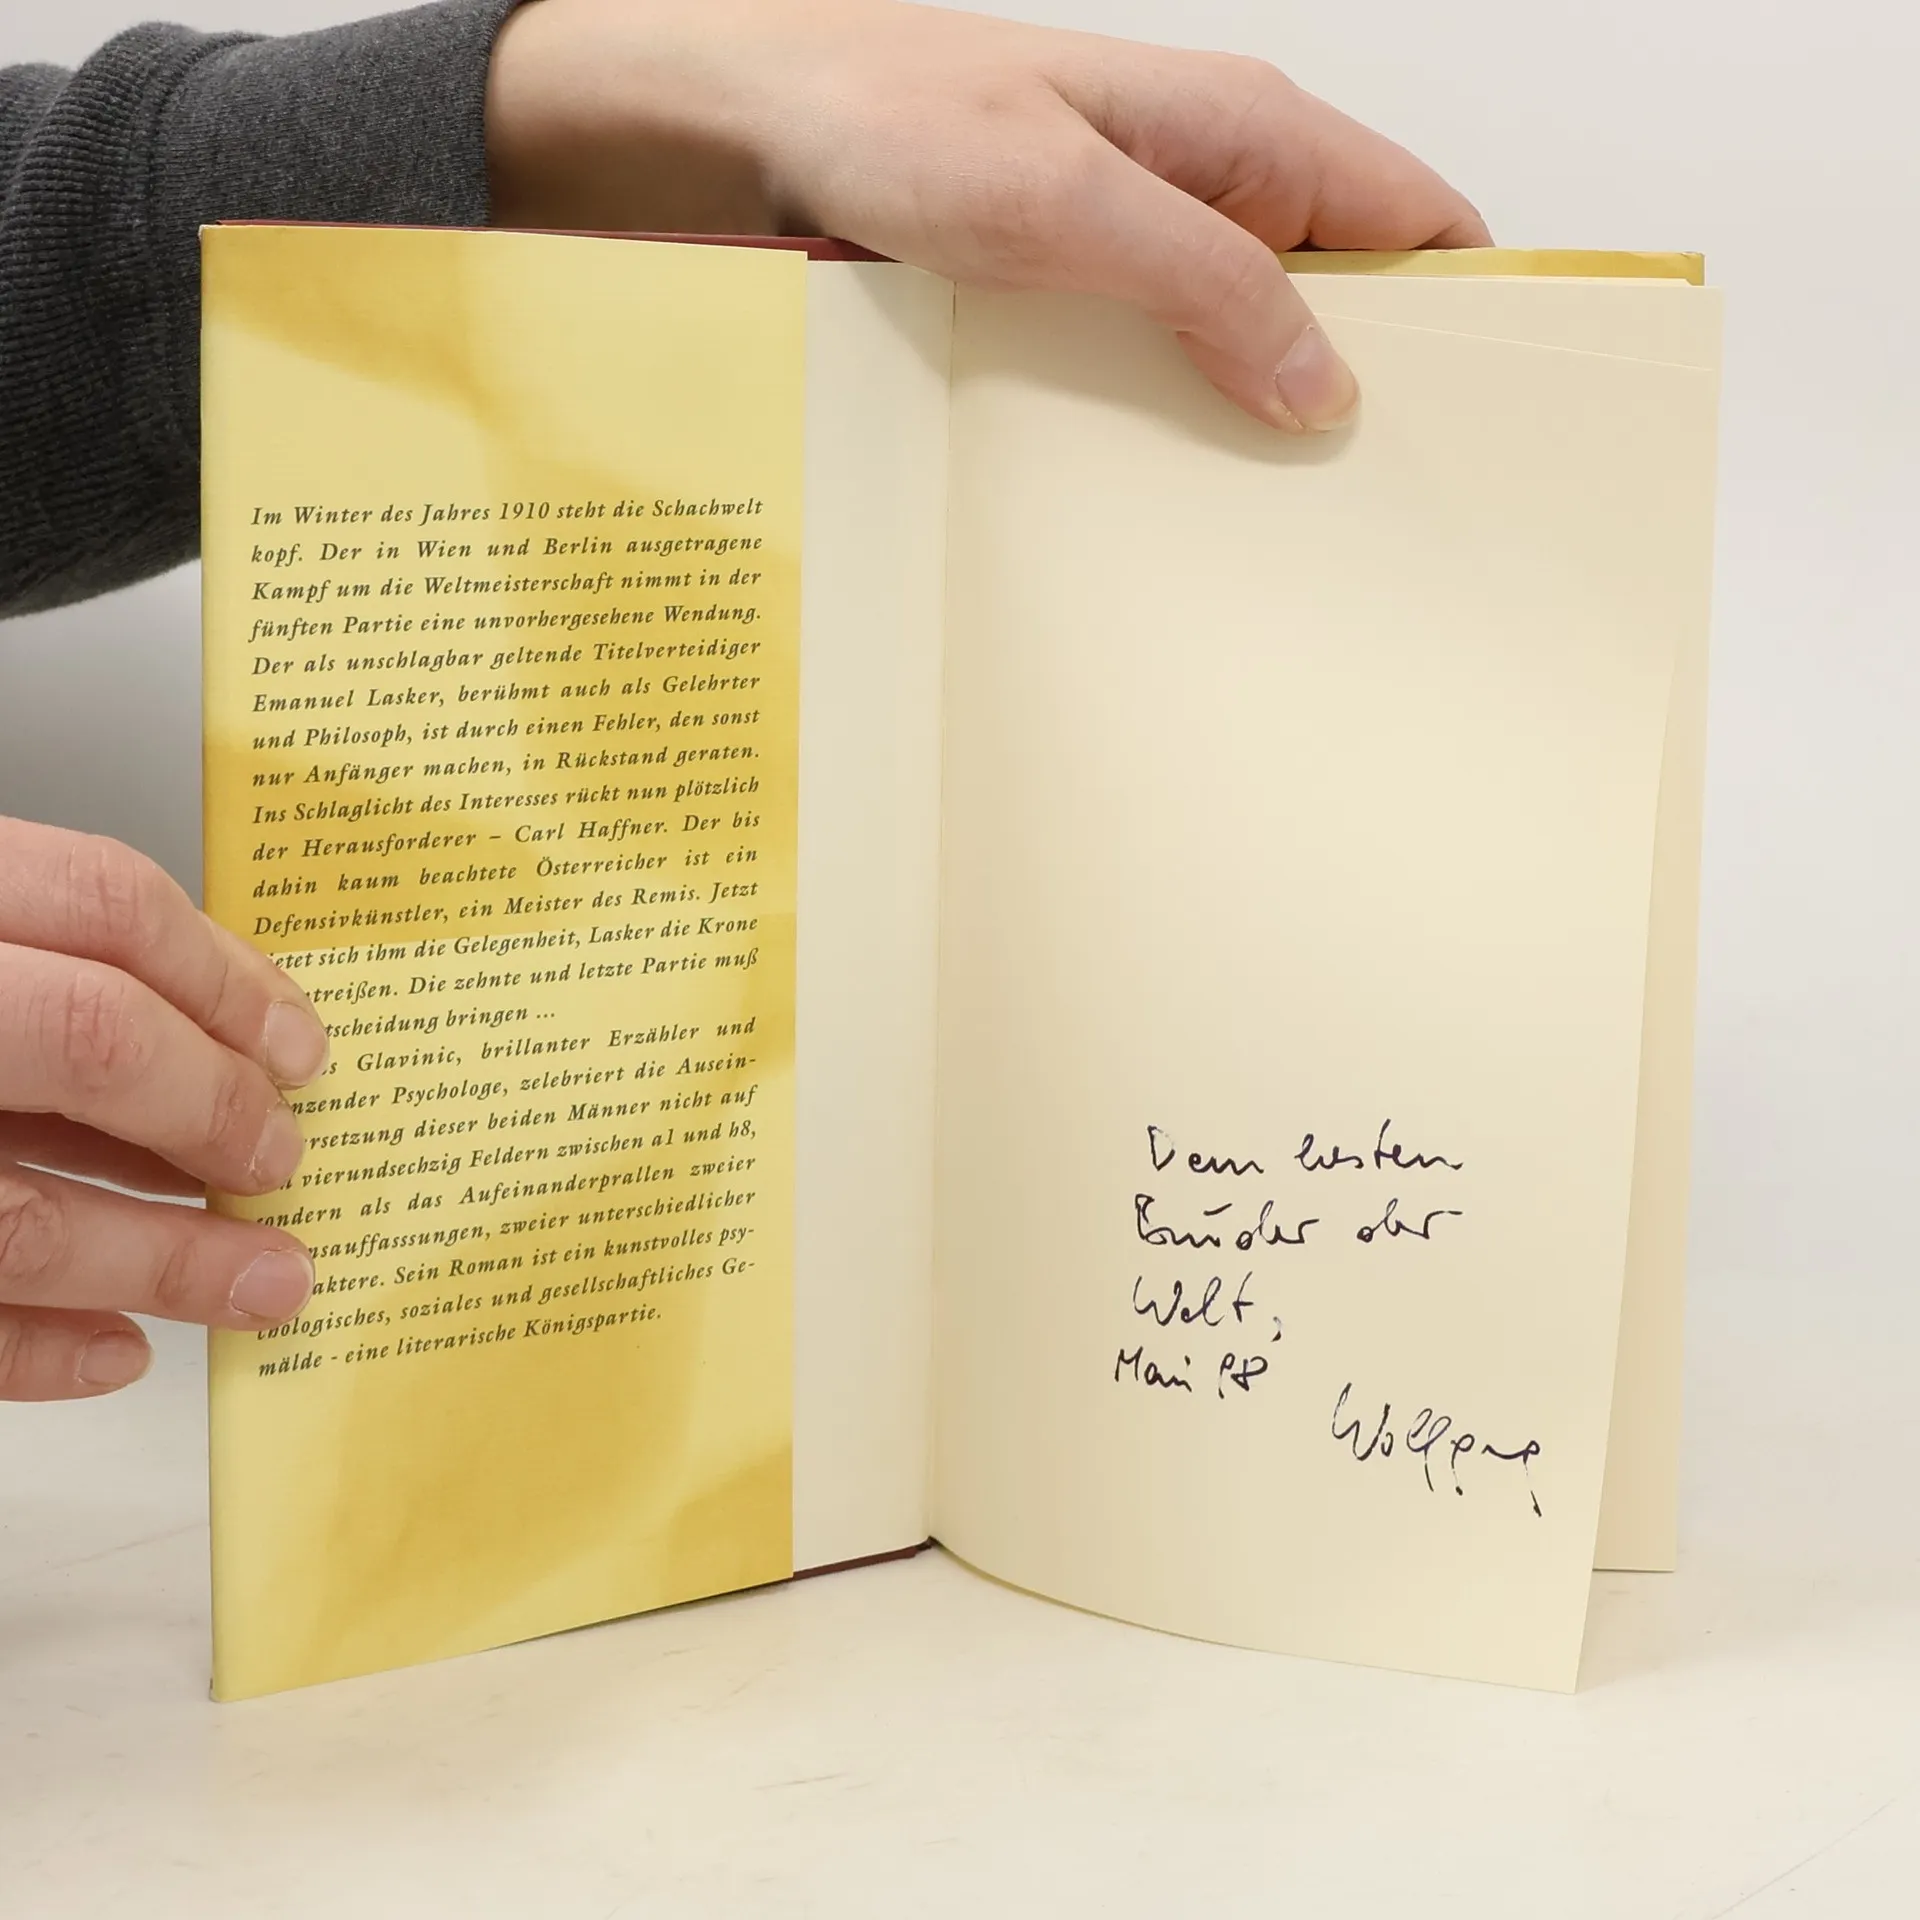 Im Winter des Jahres 1910 steht die Schachwelt
kopf. Der in Wien und Berlin ausgetragene
Kampf um die Weltmeisterschaft nimmt in der
fünften Partie eine unvorhergesehene Wendung.
Der als unschlagbar geltende Titelverteidiger
Emanuel Lasker, berühmt auch als Gelehrter
und Philosoph, ist durch einen Fehler, den sonst
nur Anfänger machen, in Rückstand geraten.
Ins Schlaglicht des Interesses rückt nun plötzlich
der Herausforderer – Carl Haffner. Der bis
dahin kaum beachtete Österreicher ist ein
Defensivkünstler, ein Meister des Remis. Jetzt
ietet sich ihm die Gelegenheit, Lasker die Krone
treißen. Die zehnte und letzte Partie muß
tscheidung bringen ...
s Glavinic, brillanter Erzähler und
nzender Psychologe, zelebriert die Ausein-
rsetzung dieser beiden Männer nicht auf
vierundsechzig Feldern zwischen a1 und h8,
ondern als das Aufeinanderprallen zweier
nsauffasssungen, zweier unterschiedlicher
aktere. Sein Roman ist ein kunstvolles psy-
chologisches, soziales und gesellschaftliches Ge-
mälde - eine literarische Königspartie.
Dem besten
Bruder der
Welt,
Mai 98
Wolfgang